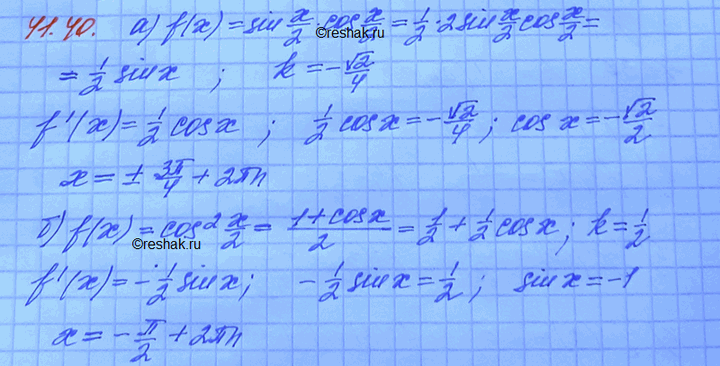 41.40. а) f(x) = sin x/2 · cos x/2 = 1/2 · 2 sin x/2 cos x/2 =
©reshak.ru
= 1/2 sin x ; k = -√2/4
f'(x) = 1/2 cos x ; 1/2 cos x = -√2/4 ; cos x = -√2/2
x = ± 3π/4 + 2πn
б) f(x) = cos² x/2 = (1 + cos x)/2 = 1/2 + 1/2 cos x ; k = 1/2
©reshak.ru
f'(x) = -1/2 sin x ; -1/2 sin x = 1/2 ; sin x = -1
x = -π/2 + 2πn